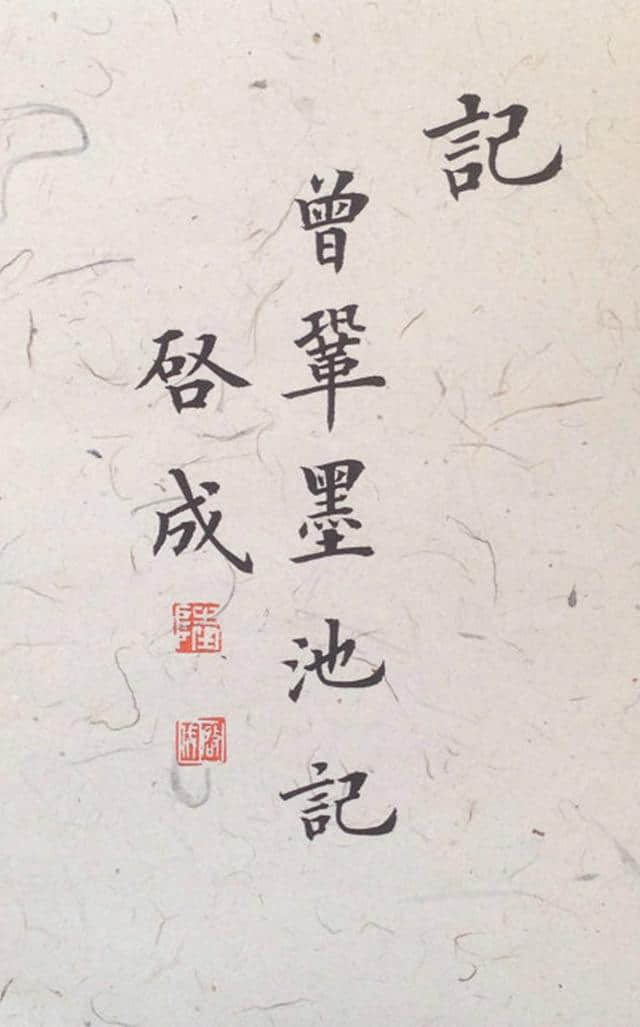 記
曾鞏墨池記
啓成